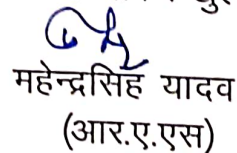 महेन्द्रसिंह यादव
(आर.ए.एस)